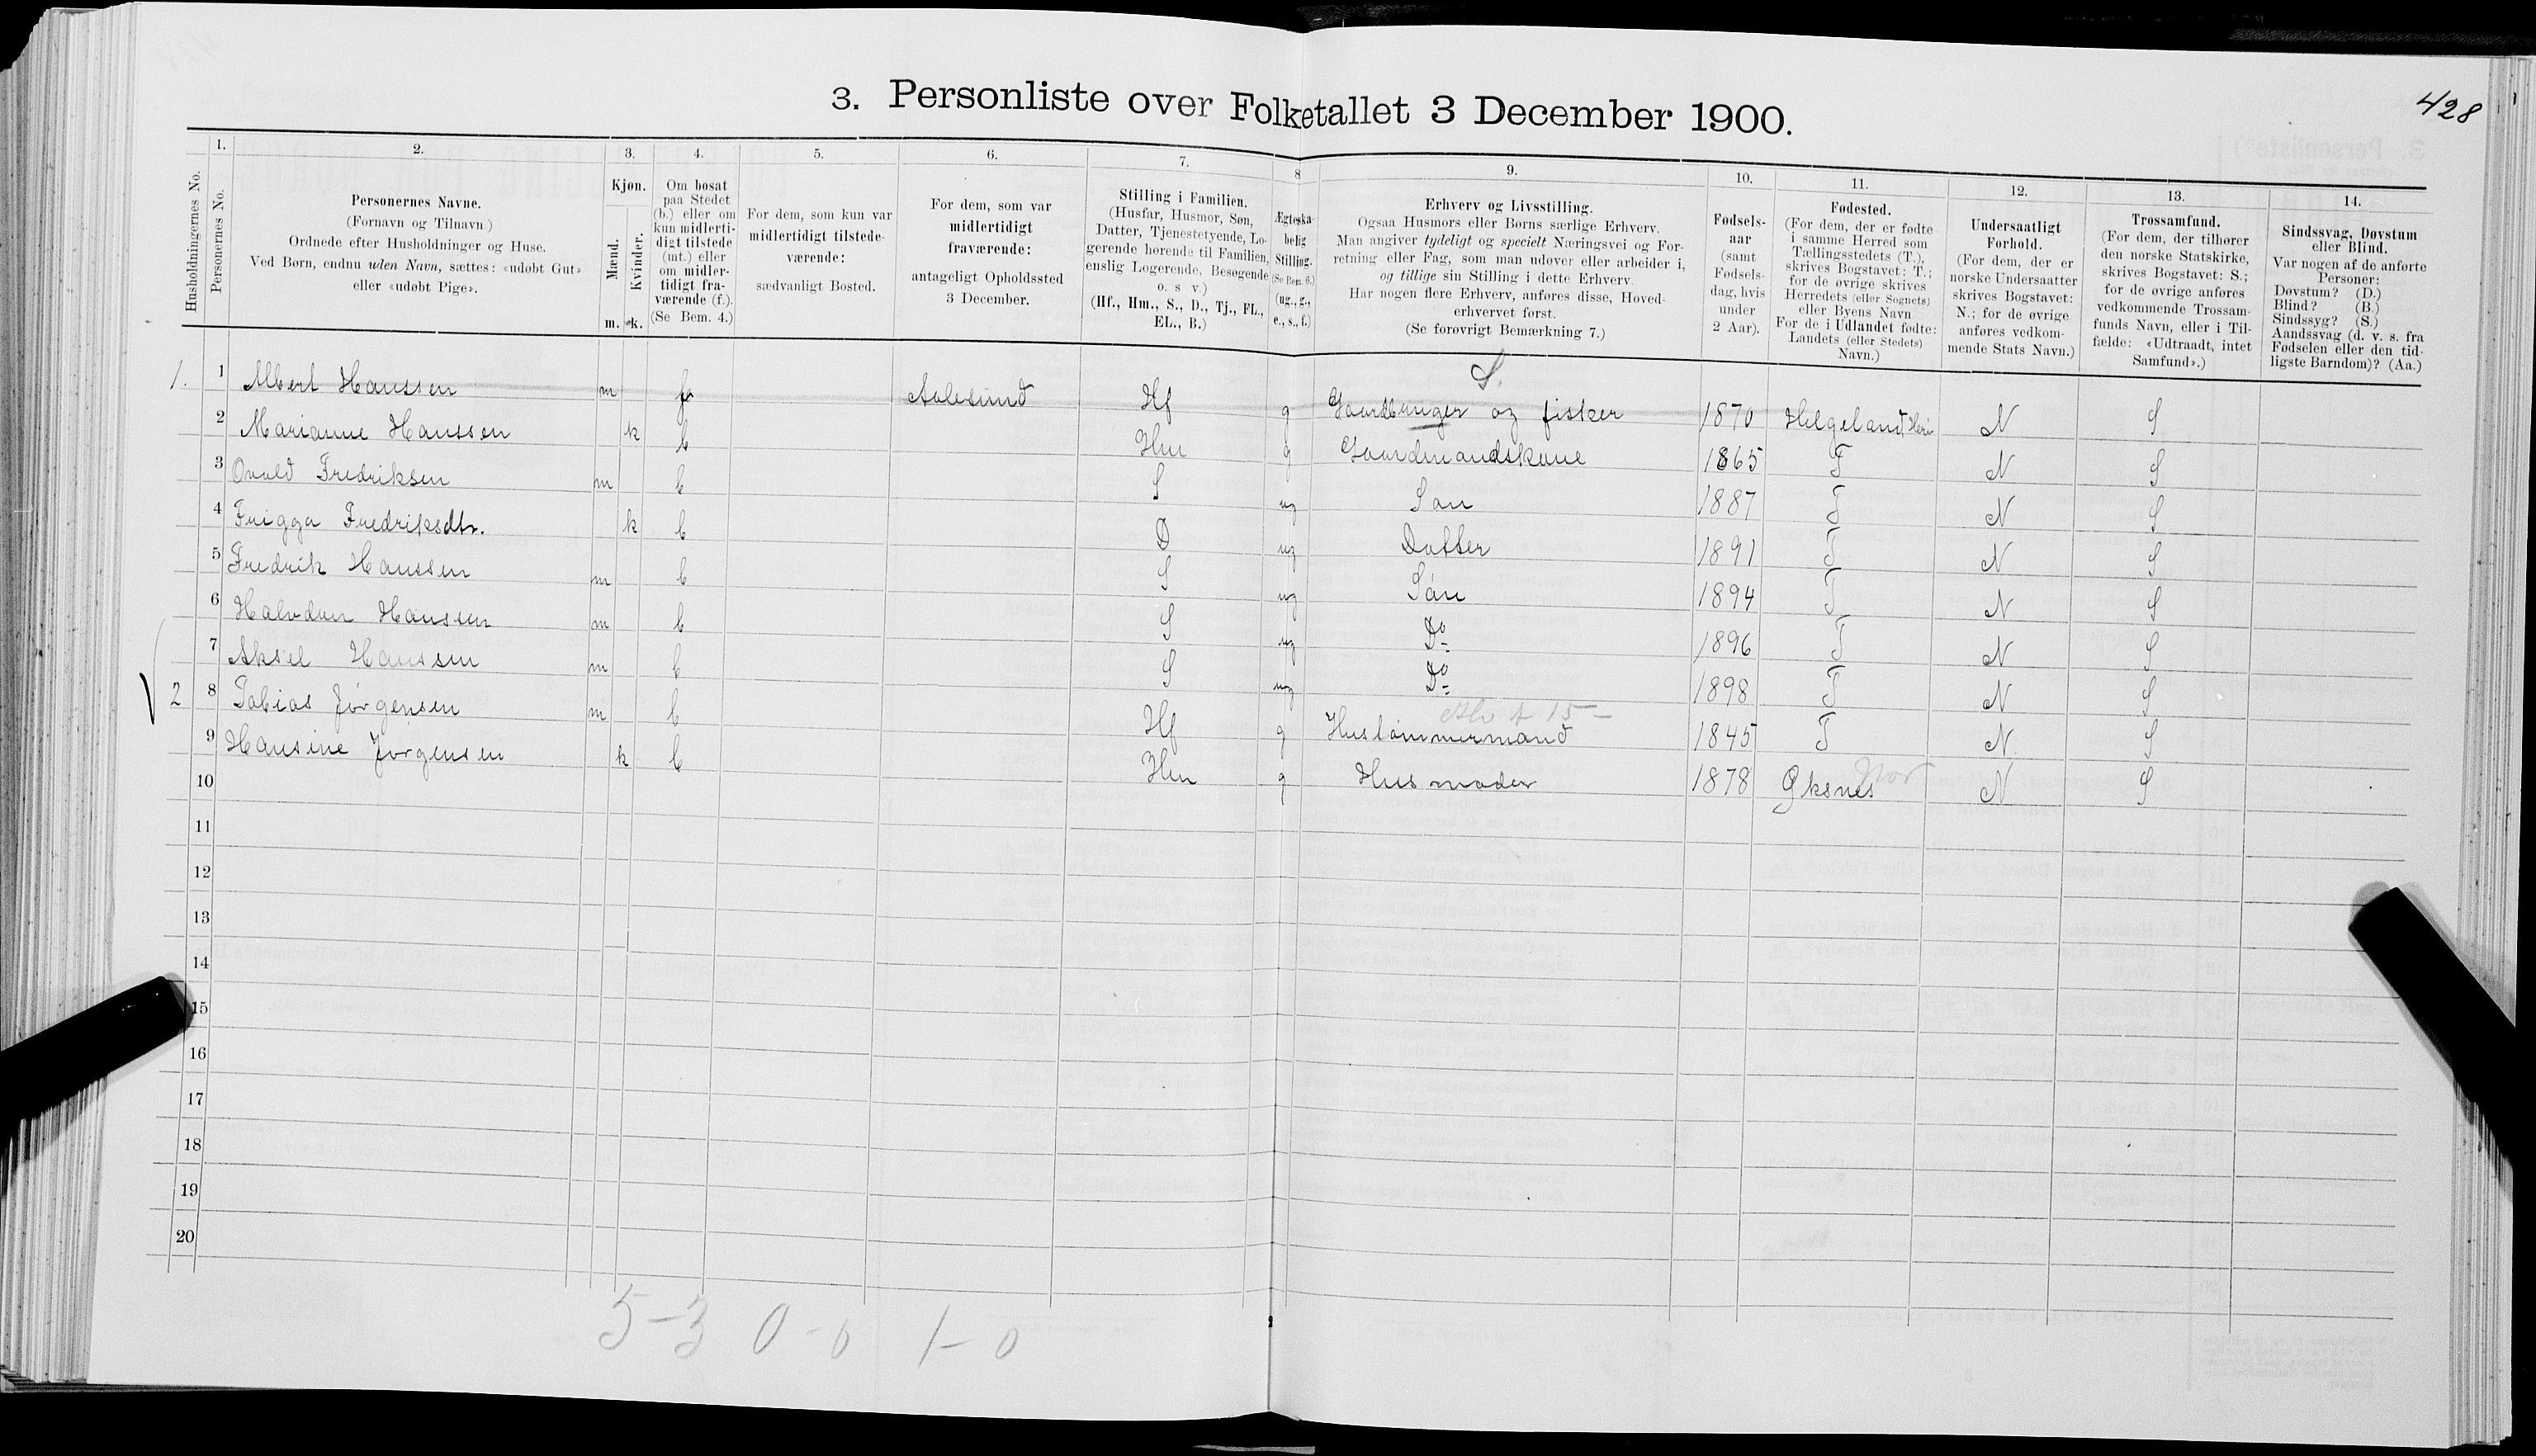 3. Personliste over Folketallet 3 December 1900.
428
Husholdningernes No.
1. Personernes No.
2. Personernes Navne.
(Fornavn og Tilnavn)
Ordnede efter Husholdninger og Huse.
Ved Børn, endnu uden Navn, sættes: «udøbt Gut»
eller «udøbt Pige».
3. Kjøn.
Mænd. Kvinder.
m. k.
4. Om bosat
paa Stedet
(b.) eller om
kun midlerti-
digt tilstede
(mt.) eller
om midler-
tidigt fra-
værende (f.).
(Se Bem. 4.)
5. For dem, som kun var
midlertidigt tilstede-
værende:
sædvanligt Bosted.
6. For dem, som var
midlertidigt
fraværende:
antageligt Opholdssted
3 December.
7. Stilling i Familien.
(Husfar, Husmor, Søn,
Datter, Tjenestetyende, Lo-
gerende hørende til Familien,
enslig Logerende, Besøgende
o. s v.)
(Hf., Hm., S., D., Tj., FL.,
EL., B.)
8 Ægteska-
belig
Stilling.
(Se Bem. 6.)
(ug., g.,
e., s., f.)
9. Erhverv og Livsstilling.
Ogsaa Husmors eller Børns særlige Erhverv.
Man angiver tydeligt og specielt Næringsvei og For-
retning eller Fag, som man udøver eller arbeider i,
og tillige sin Stilling i dette Erhverv.
Har nogen flere Erhverv, anføres disse, Hoved-
erhvervet først.
(Se forøvrigt Bemærkning 7.)
10. Fødsels-
aar
(samt
Fødsels-
dag, hvis
under
2 Aar).
11. Fødested.
(For dem, der er fødte
i samme Herred som
Tællingsstedets (T.),
skrives Bogstavet: T.;
for de øvrige skrives
Herredets (eller Sognets)
eller Byens Navn
For de i Udlandet fødte:
Landets (eller Stedets)
Navn.)
12. Undersaatligt
Forhold.
(For dem, der er
norske Undersaatter
skrives Bogstavet:
N.; for de øvrige
anføres vedkom-
mende Stats Navn.)
13. Trossamfund.
(For dem, der tilhører
den norske Statskirke,
skrives Bogstavet: S.;
for de øvrige anføres
vedkommende Trossam-
funds Navn, eller i Til-
fælde: «Udtraadt, intet
Samfund».)
14. Sindssvag, Døvstum
eller Blind.
Var nogen af de anførte
Personer:
Døvstum? (D.)
Blind? (B.)
Sindssyg? (S.)
Aandssvag (d. v. s. fra
Fødselen eller den tid-
ligste Barndom)? (Aa.)
S.
1. 1 Albert Hanssen m f Aalesund Hf g Gaardbruger og fisker 1870 Helgeland, N S
2 Marianne Hanssen k b Hm g Gaardmandskone 1865 T N S
3 Ovald Fredriksen m b S ug Søn 1887 T N S
4 Frigga Fredriksdtr. k b D ug Datter 1891 T N S
5 Fredrik Hanssen m b S ug Søn 1894 T N S
6 Halvdan Hanssen m b S ug Do 1896 T N S
7 Aksel Hanssen m b S ug Do 1898 T N S
2 8 Tobias Jørgensen m b Hf g Hustømmermand 1845 T N S
9 Hansine Jørgensen k b Hm g Husmoder 1878 Øksnes N S
10
11
12
13
14
15
16
17
18
19
20
5-3 0-0 1-0